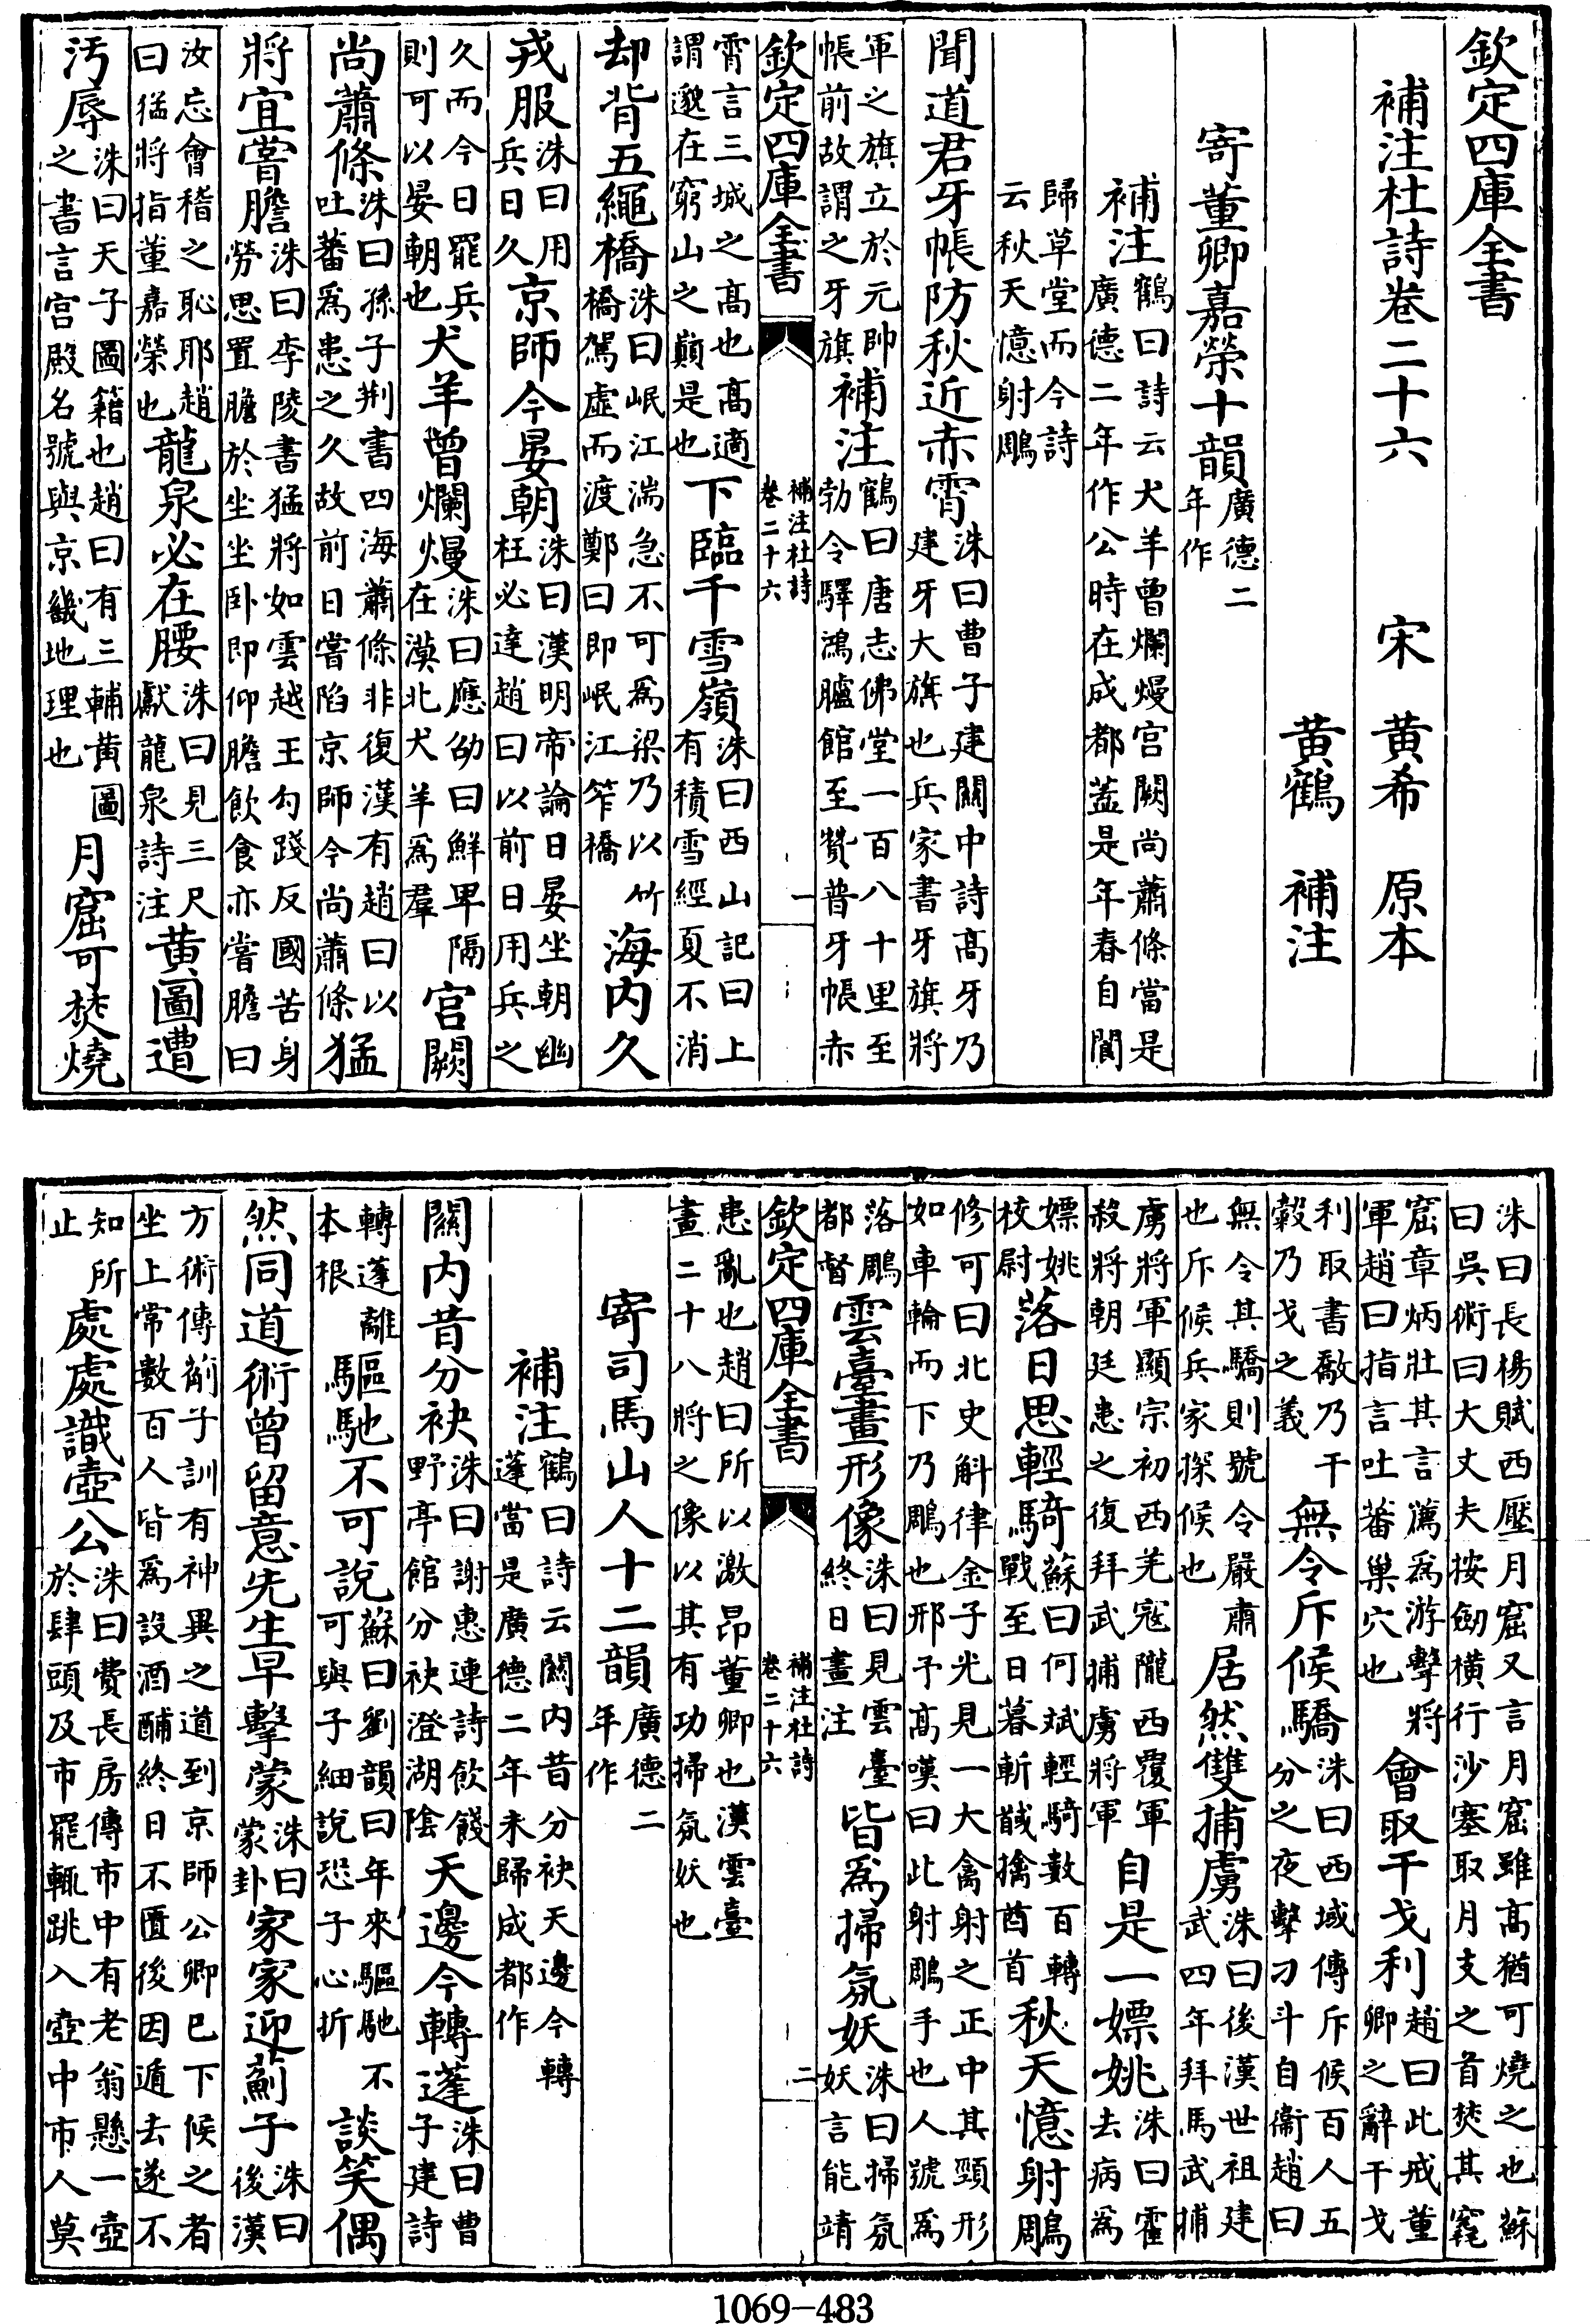 欽定四庫全書
補注杜詩卷二十六　宋　黄希　原本
黄鶴　補注
寄董卿嘉榮十韻廣德二年作
補注鶴曰詩云犬羊曾爛熳宫闕尚蕭條當是廣德二年作公時在成都葢是年春自閬
歸草堂而今詩云秋天憶射鵰
聞道君牙帳防秋近赤霄洙曰曹子建關中詩髙牙乃建牙大旗也兵家書牙旗將
軍之旗立於元帥帳前故謂之牙旗補注鶴曰唐志佛堂一百八十里至勃令驛鴻臚館至贊普牙帳赤
欽定四庫全書　補注杜詩卷二十六　一
霄言三城之髙也髙適謂邈在窮山之巔是也下臨千雪嶺洙曰西山記曰上有積雪經夏不消
却背五繩橋洙曰岷江湍急不可爲梁乃以竹橋駕虛而渡鄭曰即岷江笮橋海内久
戎服洙曰用兵日久京師今晏朝洙曰漢明帝論日晏坐朝幽枉必達趙曰以前日用兵之
久而今日罷兵則可以晏朝也犬羊曾爛熳洙曰應劭曰鮮卑隔在漠北犬羊爲羣宫闕
尚蕭條洙曰孫子荆書四海蕭條非復漢有趙曰以吐蕃爲患之久故前日嘗陷京師今尚蕭條猛
將宜嘗膽洙曰李陵書猛將如雲越王勾踐反國苦身勞思置膽於坐坐卧即仰膽飲食亦嘗膽曰
汝忘會稽之恥耶趙曰猛將指董嘉榮也龍泉必在腰洙曰見三尺獻龍泉詩注黄圖遭
汚辱洙曰天子圖籍也趙曰有三輔黄圖之書言宫殿名號與京畿地理也月窟可焚燒
洙曰長楊賦西壓月窟又言月窟雖髙猶可燒之也蘇曰吳術曰大丈夫按劒横行沙塞取月支之首焚其窠
窟章炳壯其言薦爲游擊將軍趙曰指言吐蕃巢穴也會取干戈利趙曰此戒董卿之辭干戈
利取書敽乃干糓乃戈之義無令斥候驕洙曰西域傳斥候百人五分之夜擊刁斗自衞趙曰
無令其驕則號令嚴肅也斥候兵家探候也居然雙捕虜洙曰後漢世祖建武四年拜馬武捕
虜將軍顯宗初西羌寇隴西覆軍殺將朝廷患之復拜武捕虜將軍自是一嫖姚洙曰霍去病爲
嫖姚校尉落日思輕騎蘇曰何斌輕騎數百轉戰至日暮斬馘擒酋首秋天憶射鵰
修可曰北史斛律金子光見一大禽射之正中其頸形如車輪而下乃鵰也邢予髙嘆曰此射鵰手也人號爲
落鵰都督雲臺畫形像洙曰見雲臺終日畫注皆爲掃氛妖洙曰掃氛妖言能靖
欽定四庫全書　補注杜詩卷二十六　二
患亂也趙曰所以激昂董卿也漢雲臺畫二十八將之像以其有功掃氛妖也
寄司馬山人十二韻廣德二年作
補注鶴曰詩云關内昔分袂天邊今轉蓬當是廣德二年未歸成都作
關内昔分袂洙曰謝惠連詩飲餞野亭館分袂澄湖隂天邊今轉蓬洙曰曹子建詩
轉蓬離本根驅馳不可說蘇曰劉韻曰年來驅馳不可與子細說恐子心折談笑偶
然同道術曾留意先生早擊蒙洙曰蒙卦家家迎薊子洙曰後漢
方術傳薊子訓有神異之道到京師公卿已下候之者坐上常數百人皆爲設酒酺終日不匱後因遁去遂不
知所止處處識壺公洙曰費長房傳市中有老翁懸一壺於肆頭及市罷輒跳入壺中市人莫
1069-483